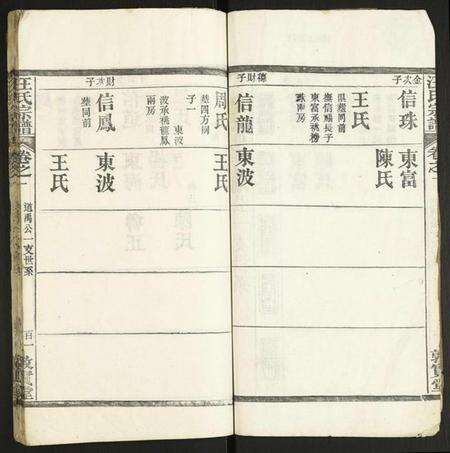 汪氏宗譜
卷之一
敦實堂
金次子
信珠
東富
陳氏
王氏
俱葬同前
撫信福長子
東富承祧榜
珠兩房
德財子
信龍
東波
周氏
王氏
葬四方坍
子一
東波
波承祧龍鳳
兩房
財次子
信鳳
東波
葬同前
王氏
汪氏宗譜
卷之一
道禹公
支世系
百一
敦實堂